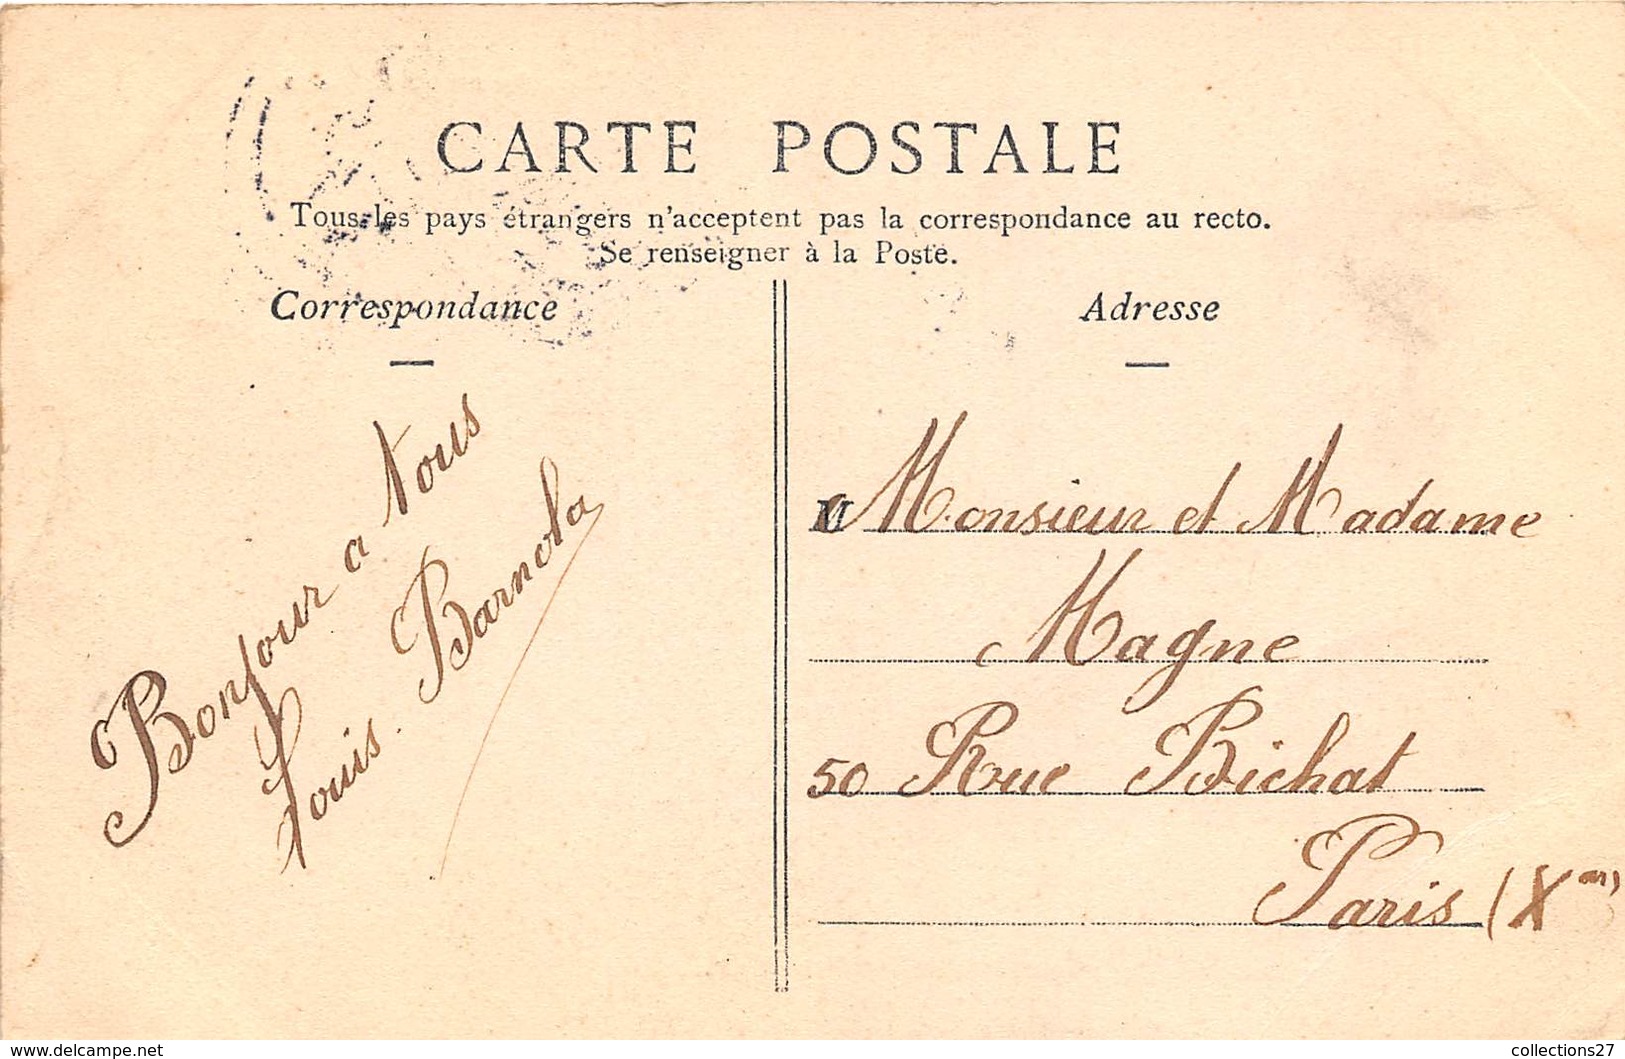 CARTE POSTALE
Tous les pays étrangers n'acceptent pas la correspondance au recto.
Se renseigner à la Poste.
Correspondance
Bonjour a tous
Louis. Barnola
Adresse
M Monsieur et Madame
Magne
50 Rue Bichat
Paris (X
www.delcampe.net
collections27